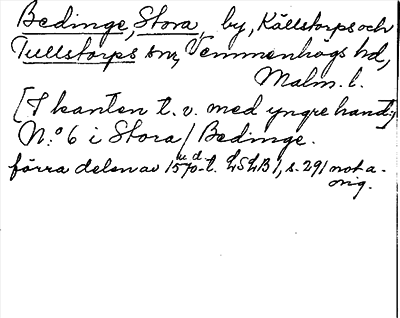 Bedinge, Stora, by, Källstorps och
Tullstorps snr, Vemmenhögs hd,
Malm. l.
[I kanten t. v. med yngre hand:]
N:o 6 i Stora/Bedinge.
förra delen av 1570-t. LSLB 1, s. 291 not a.
orig.